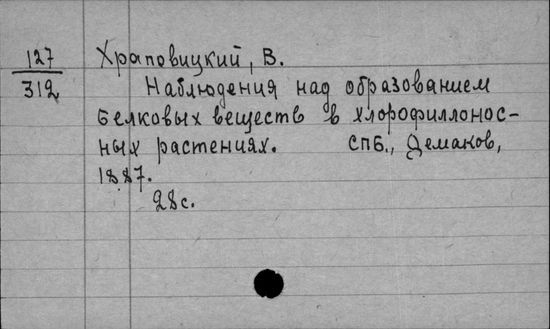 127
312
Храповицкий, В.
Наблюдения над образованием
белковых веществ в хлорофиллонос-
ных растениях. СПБ., Демаков,
1887.
28с.